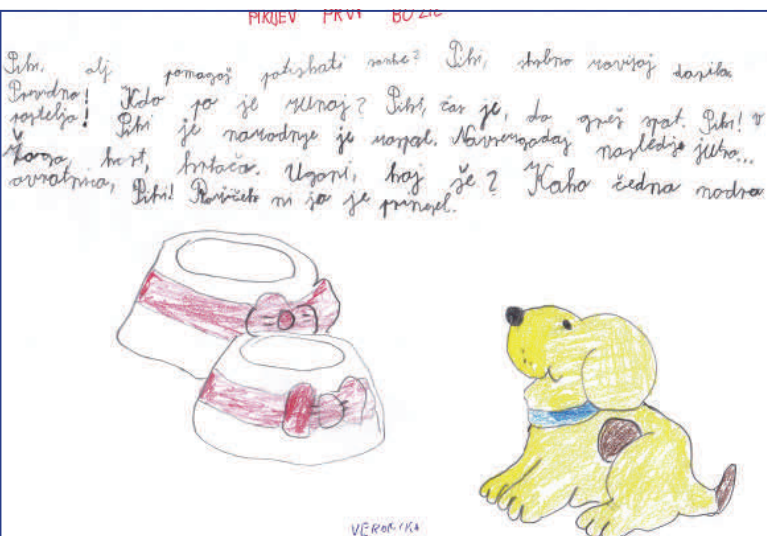 PIKIJEV PRVI BOŽIČ
Piki, alj pomagaj potiskati sanke? Piki, skrbno zavijaj darila
Previdno! Kdo pa je zunaj? Piki, čas je, da greš spat. Piki! V
posteljo! Piki je navodnje je zaspal. Navsezgodaj naslednje jutro...
Žoga, kost, krtača. Ugani, kaj še? Kako čedna modra
ovratnica, Piki! Božiček ni jo je prinesel.
VERONIKA